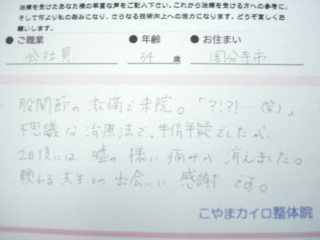 治療を受けたあなた様の率直な声をご記入下さい。これから治療を受ける方への参考に、
そして何より私の励みになり、さらなる技術向上への活力になります。どうぞ宜しくお
願いします。
●ご職業 ●年齢 ●お住まい
会社員 34歳 国分寺市
股関節の激痛で来院。「?!?!…(笑)」
不思議な治療法で、半信半疑でしたが、
2日後には嘘の様に痛みが消えました。
頼れる先生との出会いに感謝です。
こやまカイロ整体院